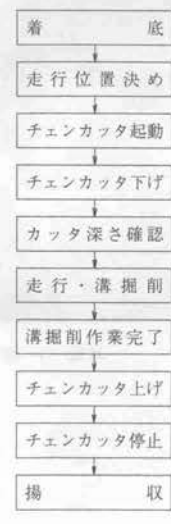 着底
走行位置決め
チェンカッタ起動
チェンカッタ下げ
カッタ深さ確認
走行・溝掘削
溝掘削作業完了
チェンカッタ上げ
チェンカッタ停止
揚収